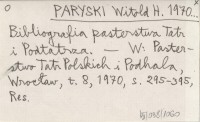 PARYSKI Witold H. 1970...
Bibliografia pasterstwa Tatr
i Podtatrza. — W: Paster-
stwo Tatr Polskich i Podhala,
Wrocław, t. 8, 1970, s. 295-395,
Res.